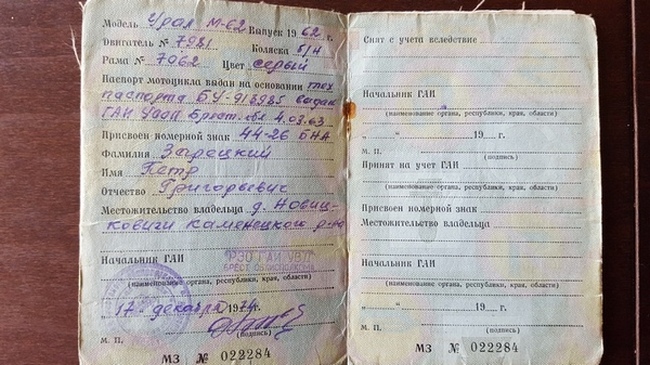 Модель Урал М-62 Выпуск 1962 г.
Двигатель № 7981 Коляска б/н
Рама № 7962 Цвет серый
Паспорт мотоцикла выдан на основании тех
паспорта БУ-913985 выдан
ГАИ УООП Брест. обл 4.03.63
Присвоен номерной знак 44-26 БНА
Фамилия Зарецкий
Имя Петр
Отчество Григорьевич
Местожительство владельца д. Новиц-
ковичи Каменецкого р-на
Начальник ГАИ РЭО ГАИ УВД
БРЕСТ
(наименование органа, республики, края, области)
17 декабря 1974
(подпись)
М. П.
МЗ № 022284
Снят с учета вследствие
Начальник ГАИ
(наименование органа, республики, края, области)
„ “ 19 г.
М. П. (подпись)
Принят на учет ГАИ
(наименование органа, республики, края, области)
Присвоен номерной знак
Местожительство владельца
Начальник ГАИ
(наименование органа, республики, края, области)
„ “ 19 г.
(подпись)
М. П.
МЗ № 022284